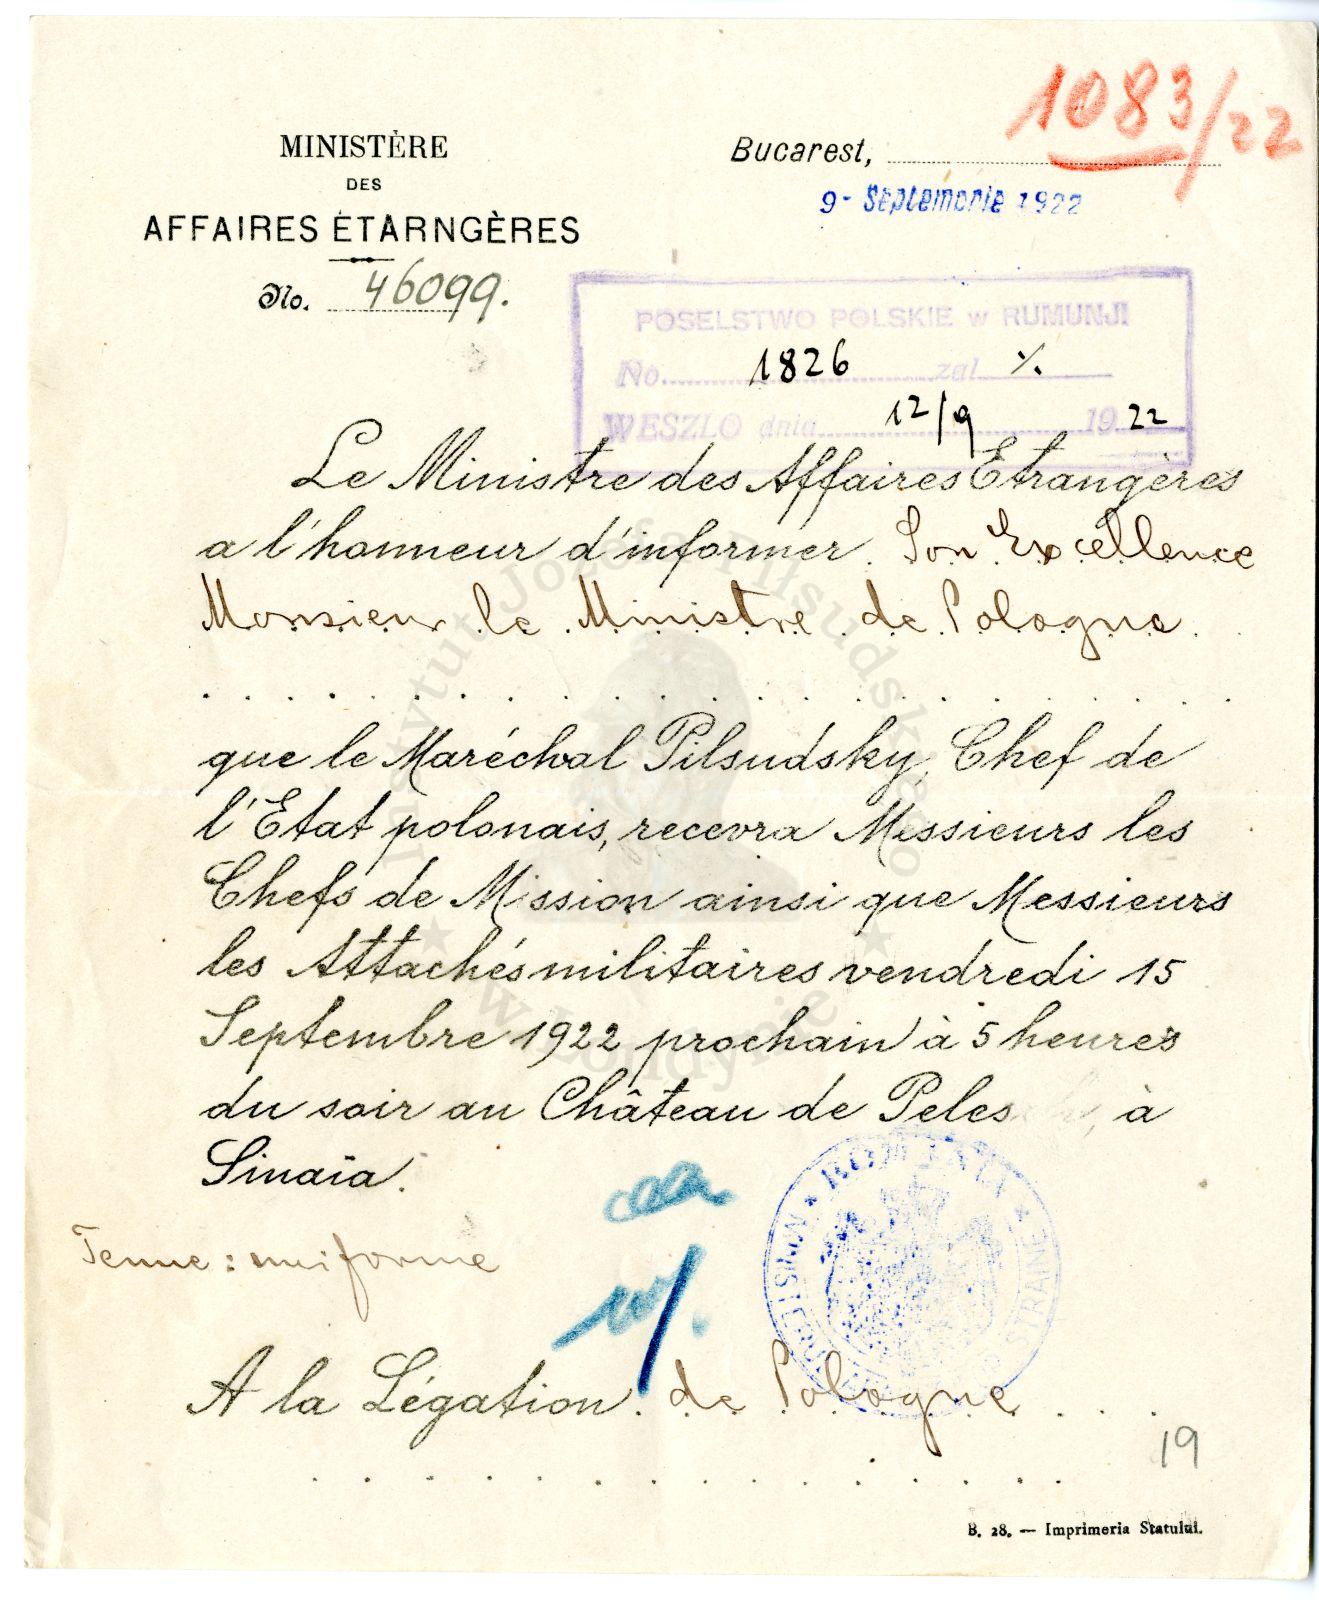 1083/22
MINISTÈRE
DES
AFFAIRES ÉTARNGÈRES
No. 46099.
Bucarest,
9- Septemvrie 1922
POSELSTWO POLSKIE w RUMUNJI
No. 1826 zal %.
WESZLO dnia 12/9 1922
Le Ministre des Affaires Etrangères
a l'honneur d'informer Son Excellence
Monsieur le Ministre de Pologne
que le Maréchal Pilsudsky, Chef de
l'Etat polonais, recevra Messieurs les
Chefs de Mission ainsi que Messieurs
les Attachés militaires vendredi 15
Septembre 1922 prochain à 5 heures
du soir au Château de Peles, à
Sinaïa.
Tenue: uniforme
A la Légation de Pologne
19
B. 28. — Imprimeria Statului.
Instytut Józefa Piłsudskiego
w Londynie
ROMANIA
STRAINE